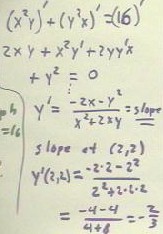 (x²y)' + (y²x)' = (16)'
2xy + x²y' + 2yy'x
+ y² = 0
y' = (-2x - y²)/(x² + 2yx) = slope
=16
slope at (2,2)
y'(2,2) = (-2·2 - 2²)/(2² + 2·2·2)
= (-4-4)/(4+8) = -2/3